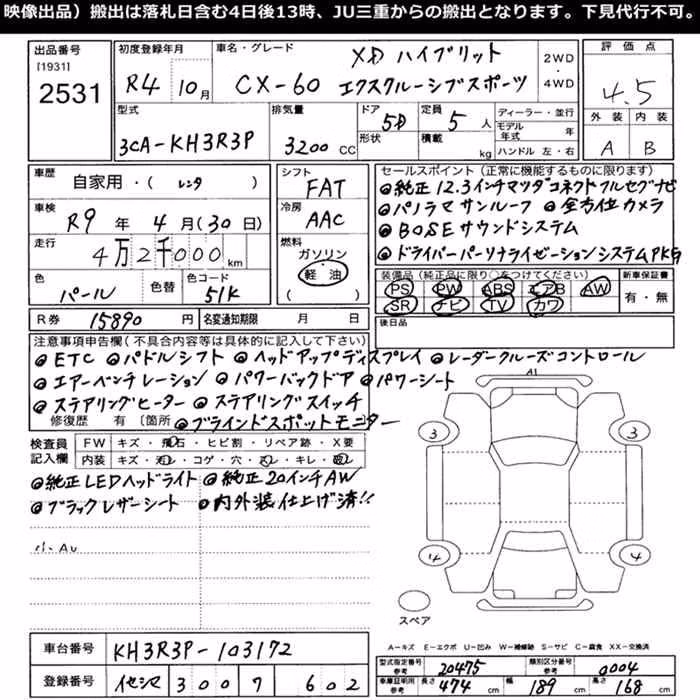 映像出品）搬出は落札日含む4日後13時、JU三重からの搬出となります。下見代行不可。
出品番号 初度登録年月 車名・グレード XD ハイブリット 2WD・4WD 評価点
[1931]
2531 R4年 10月 CX-60 エクスクルーシブスポーツ 4.5
型式 排気量 ドア 5D 定員 5人 ディーラー・並行 外装 内装
3CA-KH3R3P 3200 CC 形状 積載 kg モデル年式 年 ハンドル 左・右 A B
車歴 自家用・( レンタ ) シフト FAT セールスポイント（正常に機能するものに限ります）
車検 R9年 4月(30日) 冷房 AAC ◎純正12.3インチマツダコネクトフルセグナビ
◎パノラマサンルーフ ◎全方位カメラ
走行 4万2千000km 燃料 ガソリン ◎BOSEサウンドシステム
軽油 ( ) ◎ドライバーパーソナライゼーションシステムPKG
色 パール 色替 色コード 51K 装備品（純正品に限り○をつけてください） 新車保証書
PS PW ABS エアB AW 有・無
SR ナビ TV カワ
R券 15890円 名変通知期限 月 日 後日品
注意事項申告欄（不具合内容等は具体的に記入して下さい）
◎ETC ◎パドルシフト ◎ヘッドアップディスプレイ ◎レーダークルーズコントロール
◎エアーベンチレーション ◎パワーバックドア ◎パワーシート
◎ステアリングヒーター ◎ステアリングスイッチ
修復歴 有 〔箇所 ◎ブラインドスポットモニター
検査員記入欄 FW キズ・飛石・ヒビ割・リペア跡・X要
内装 キズ・汚レ・コゲ・穴・スレ・キレ・破レ
◎純正LEDヘッドライト ◎純正20インチAW
◎ブラックレザーシート ◎内外装仕上げ済!!
小・AU
A1
3 3
4 4
スペア
A-キズ E-エクボ U-凹み W-補修跡 S-サビ C-腐食 XX-交換済
車台番号 KH3R3P-103172
型式指定番号 参考 20475 類別区分番号 参考 0004
登録番号 イセシマ 300 ワ 602
車庫証明用 参考 長さ 474cm 幅 189cm 高さ 168cm